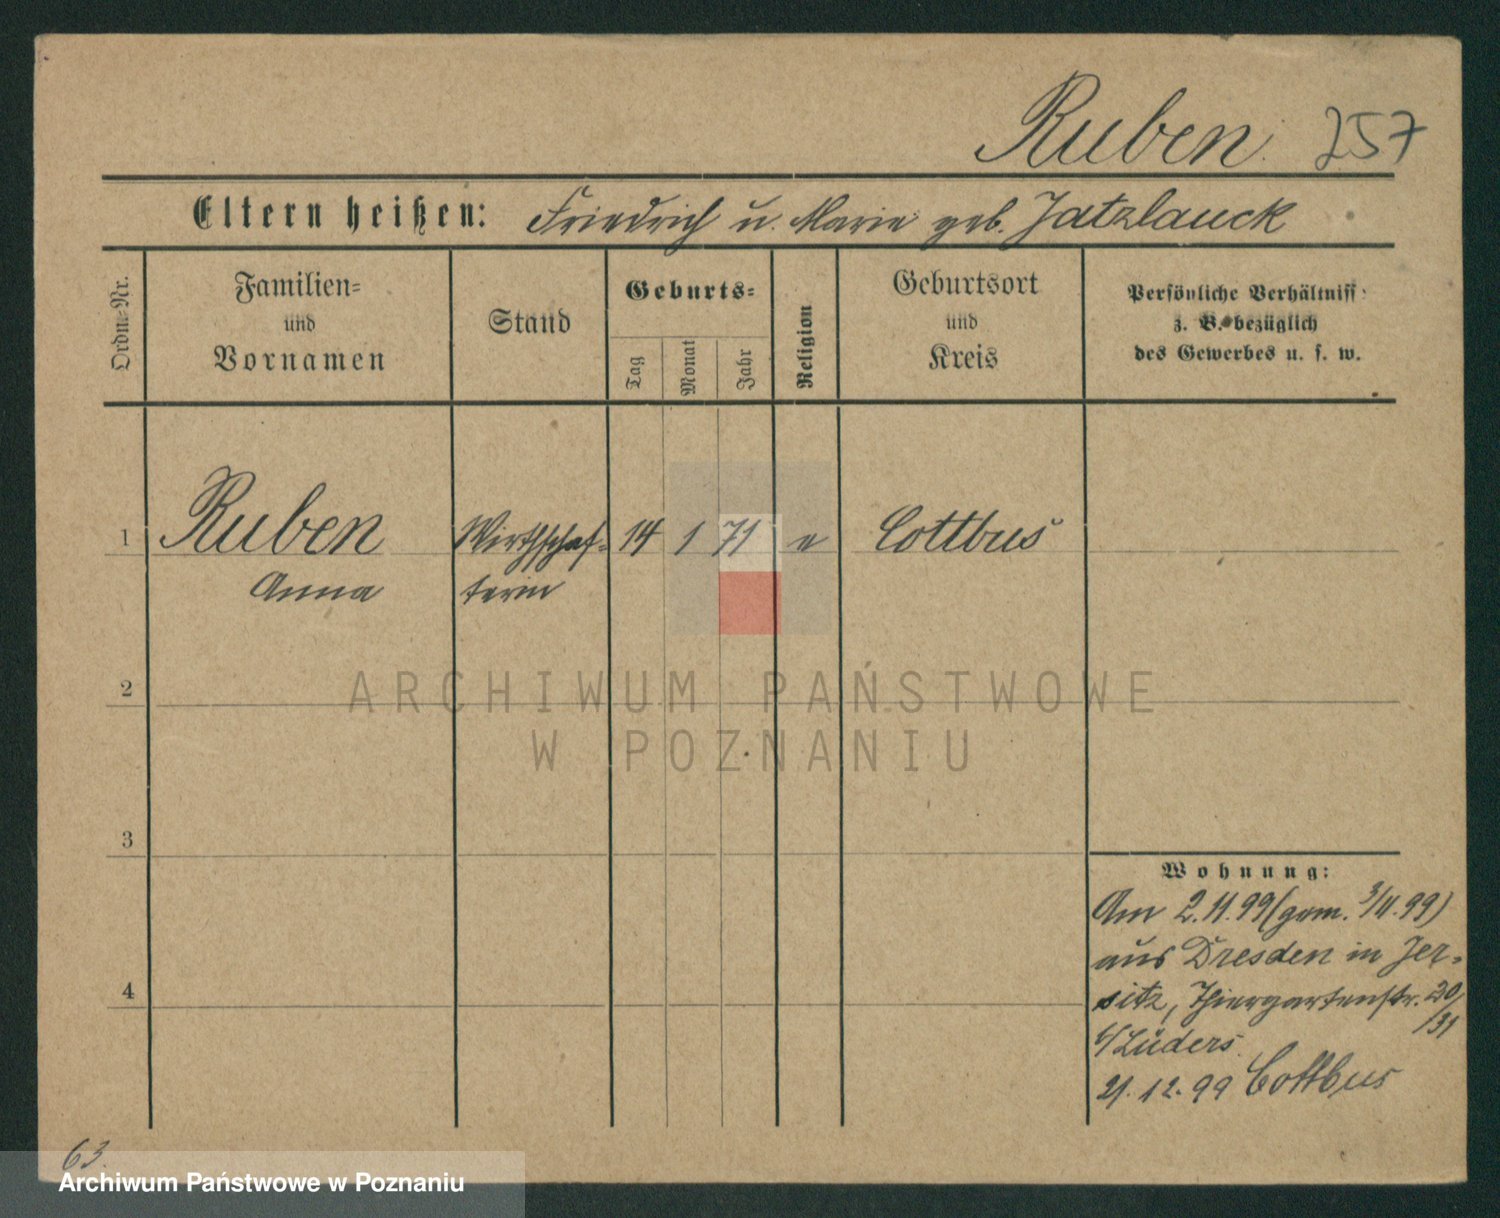 Ruben. 257
Eltern heißen: Friedrich u. Marie geb. Jatzlauck
Ordn.-Nr.
Familien=
und
Vornamen
Stand
Geburts=
Tag
Monat
Jahr
Religion
Geburtsort
und
Kreis
Persönliche Verhältniss
z. B. bezüglich
des Gewerbes u. s. w.
1 Ruben Wirthschaf= 14 1 71 e Cottbus
Anna terin
2
3
4
Wohnung:
Am 2.11.99 (gem. 3/11.99)
aus Dresden in Jer=
sitz, Thiergartenstr. 30/
/31
b/Lüders.
21.12.99 Cottbus
63.
ARCHIWUM PAŃSTWOWE
W POZNANIU
Archiwum Państwowe w Poznaniu